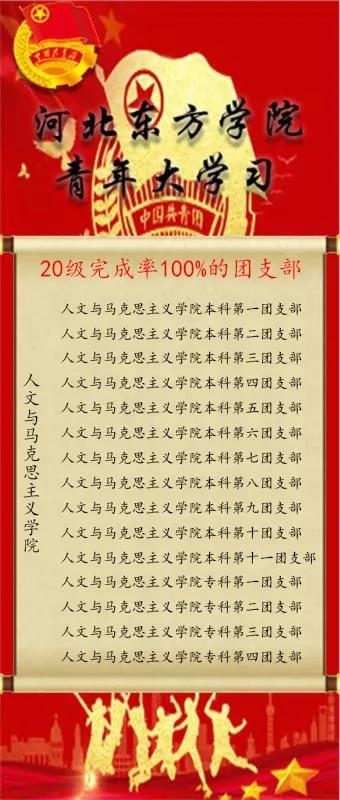 中国共青团
河北东方学院
青年大学习
中国共青团
20级完成率100%的团支部
人文与马克思主义学院
人文与马克思主义学院本科第一团支部
人文与马克思主义学院本科第二团支部
人文与马克思主义学院本科第三团支部
人文与马克思主义学院本科第四团支部
人文与马克思主义学院本科第五团支部
人文与马克思主义学院本科第六团支部
人文与马克思主义学院本科第七团支部
人文与马克思主义学院本科第八团支部
人文与马克思主义学院本科第九团支部
人文与马克思主义学院本科第十团支部
人文与马克思主义学院本科第十一团支部
人文与马克思主义学院专科第一团支部
人文与马克思主义学院专科第二团支部
人文与马克思主义学院专科第三团支部
人文与马克思主义学院专科第四团支部